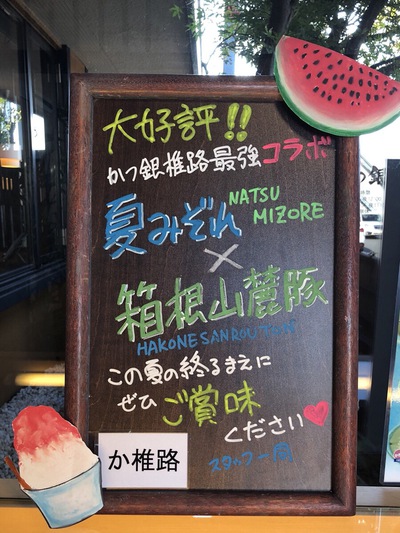 大好評!!
かつ銀椎路最強コラボ
夏みぞれ
NATSU
MIZORE
×
箱根山麓豚
HAKONESANROUTON
この夏の終るまえに
ぜひ ご賞味
ください
スタッフ一同
か椎路